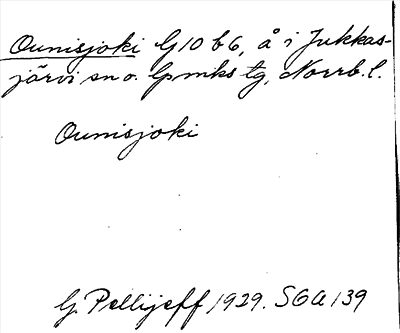 Ounisjoki G10 b6, å i Jukkas-
järvi sn o. lpmks tg, Norrb. l.
Ounisjoki
G. Pellijeff 1929. SOA 139